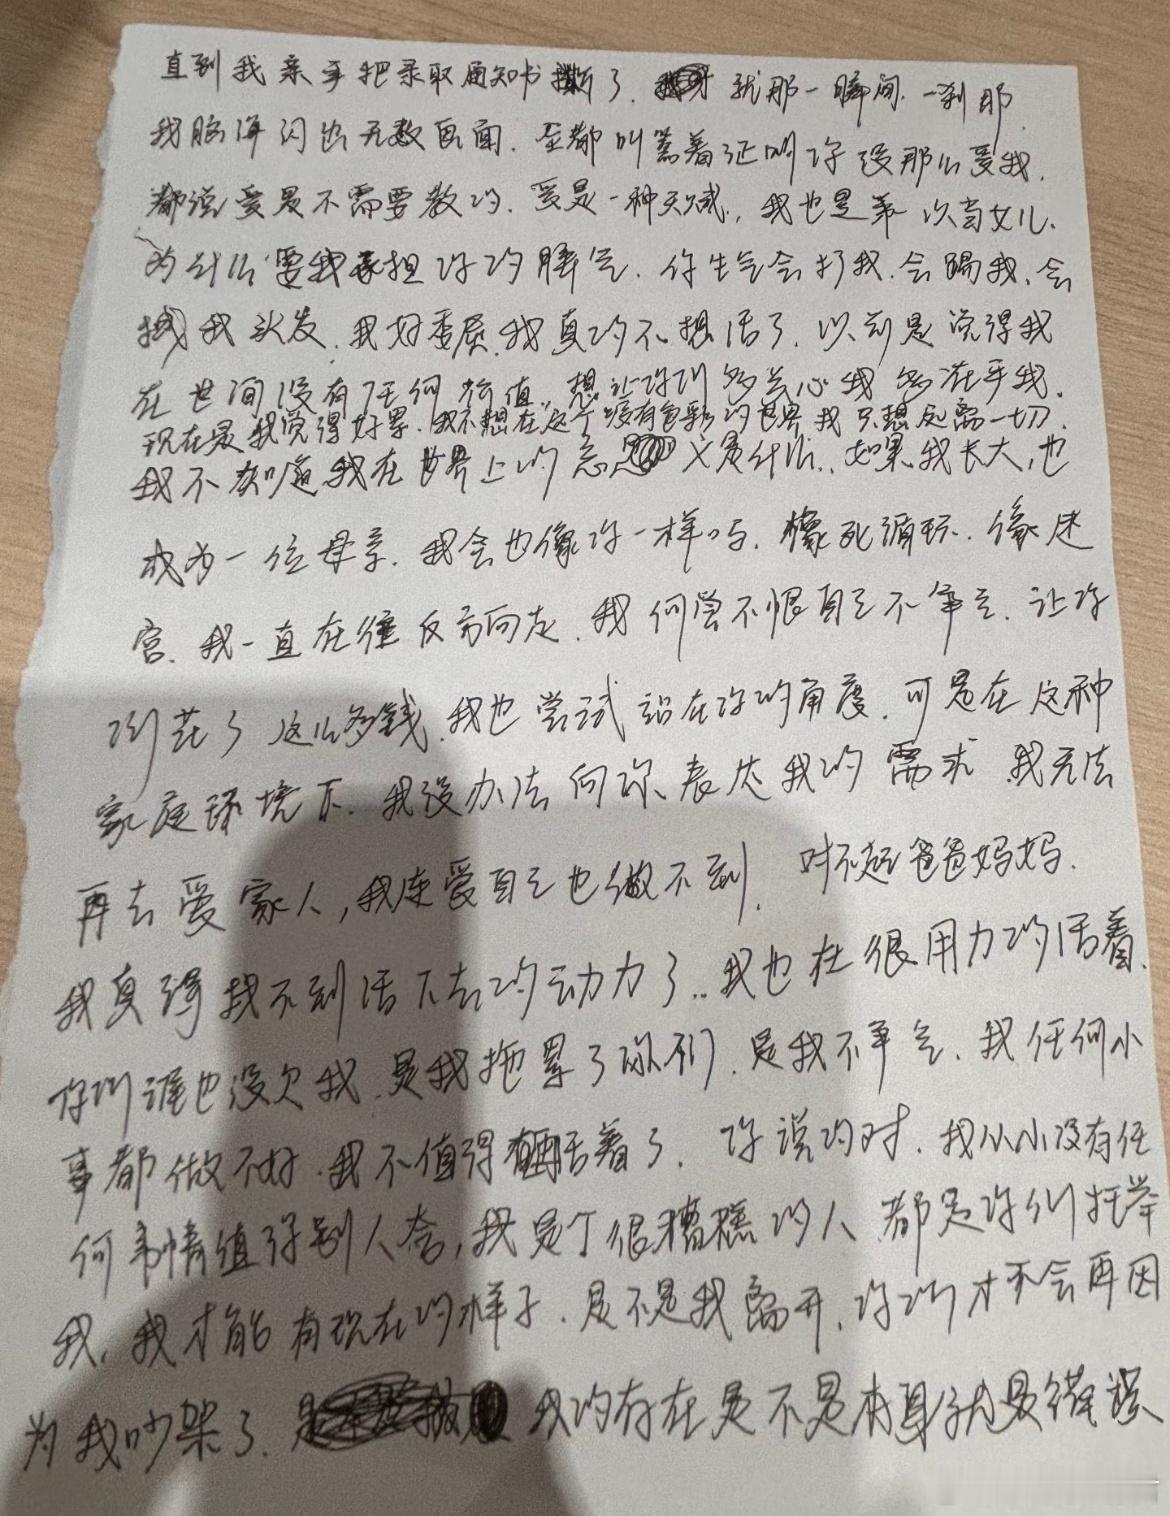 直到我亲手把录取通知书撕了.就那一瞬间.一刹那.
我脑海闪出无数画面.全都叫嚣着证明你没那么爱我.
都说爱是不需要教的.爱是一种天赋.,我也是第一次当女儿.
为什么要我承担你的脾气.你生气会打我.会踢我.会
我头发.我好委屈.我真的不想活了.以前是觉得我
在世间没有任何价值.想让你们多关心我多在乎我.
现在是我觉得好累.我不想在这个没有色彩的世界我只想远离一切.
我不知道我在世界上的意义是什么..如果我长大,也
成为一位母亲.我会也像你一样吗.像死循环.像迷
宫.我一直在往反方向走.我何尝不恨自己不争气.让你
们花了这么多钱.我也尝试站在你的角度.可是在这种
家庭环境下.我没办法向你表达我的需求.我无法
再去爱家人,我连爱自己也做不到.对不起爸爸妈妈.
我真得找不到活下去的动力了..我也在很用力的活着.
你们谁也没欠我.是我拖累了你们.是我不争气.我任何小
事都做不好.我不值得活着了.你说的对.我从小没有任
何事情值得别人夸,我是个很糟糕的人.都是你们托举
我,我才能有现在的样子.是不是我离开.你们才不会再因
为我吵架了.我的存在是不是本身就是错误